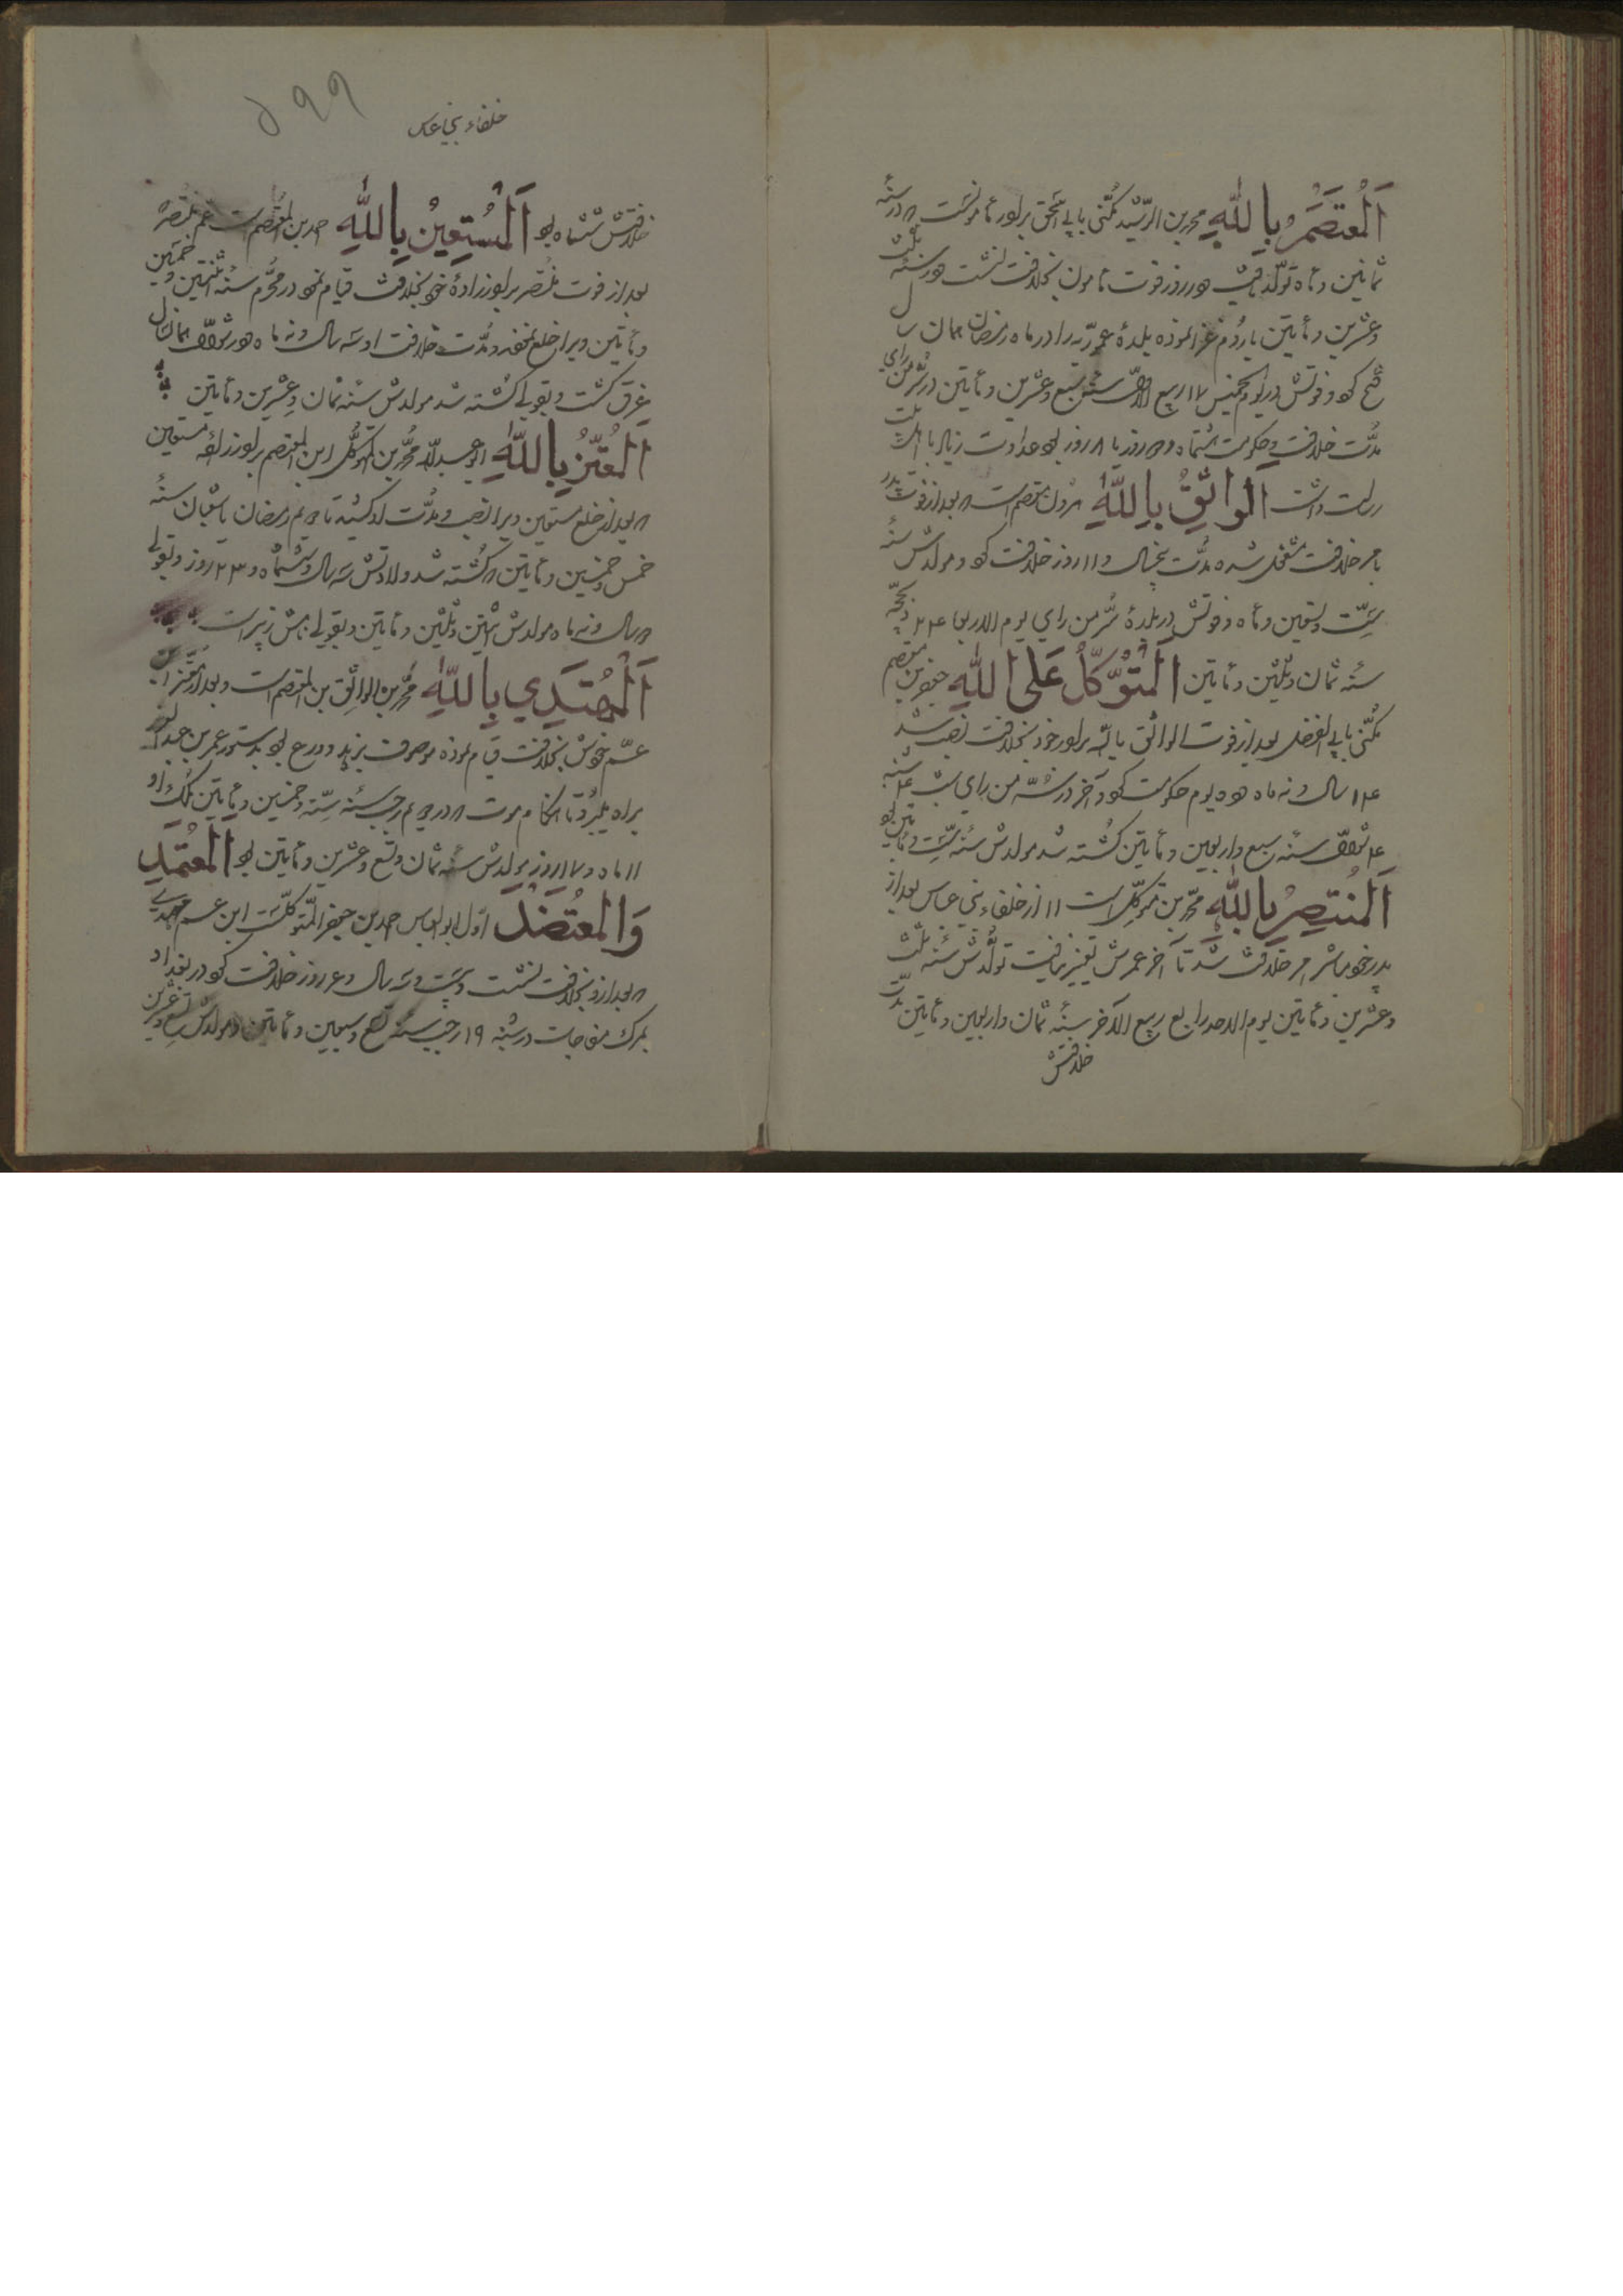 اَلْمُعتَصَمُ بِاللّٰهِ محمد بن الرّشید مُکنّی بابی اسحٰق برادر مأمونست در سنهٔ
ثمانین و مأه تولّد یافت در روز فوت مأمون بخلافت نشست در سنهٔ ثلث
وعشرین و مأیتین با روم غزا نموده بلدهٔ عموریه را در ماه رمضان همان سال
فتح کرد و فوتش در یوم الخمیس ۱۷ ربیع الاول سنه سبع وعشرین و مأیتین در سُرّ من رای
مُدّت خلافت و حکومت هشتماه و روز یا ۸ روز بود عداوت زیاد با اهل بیت
رسالت داشت اَلْواثِقُ بِاللّٰهِ هرون بن معتصم است بعد از فوت پدر
بامر خلافت مشغول شده مُدّت پنجسال و ۱۱ روز خلافت کرد و مولدش سنهٔ
سِتّ وتسعین و مأه و فوتش در بلدهٔ سُرّ من رای یوم الاربعا ۲۴ ذیحجّه
سنه ثمان وثلثین و مأیتین اَلْمُتَوَکِّلُ عَلَی اللّٰهِ جعفر بن معتصم
مُکنّی بابی الفضل بعد از فوت الواثق بالله برادر خود بخلافت نصب شد
۱۴ سال و نه ماه و یوم حکومت کرد و آخر در سُرّ من رای شب ۴ شنبه
۴ شوّال سنهٔ سبع واربعین و مأیتین کُشته شد مولدش سنهٔ سِتّ و مأیتین بود
اَلْمُنتَصِرُ بِاللّٰهِ محمّد بن متوکّل است ۱۱ از خلفاء بنی عباس بعد از
پدر خود مباشر امر خلافت شد تا آخر عمرش تغییر نیافت تولّدش سنهٔ ثلث
وعشرین و مأیتین یوم الاحد رابع ربیع الآخر سنهٔ ثمان واربعین و مأیتین مدّت
خلافتش
خلفاء بنی عباس
۵۹۹
خلافتش شش ماه بود اَلْمُسْتَعِیْنُ بِاللّٰهِ احمد بن المعتصم است عم منتصر
بعد از فوت منتصر برادر زادهٔ خود بخلافت قیام نمود در محرّم سنهٔ اثنتین و خمسین
و مأیتین ویرا خلع نمودند و مُدّت خلافت او سه سال و نه ماه در شوّال همان سال
غرق گشت و بقولی کُشته شد مولدش سنه ثمان وعشرین و مأیتین
اَلْمُعْتَزُّ بِاللّٰهِ ابو عبد اللّٰه محمّد بن المتوکّل ابن المعتصم برادر زادهٔ مستعین
بعد از خلع مستعین ویرا نصب و مُدّت او کشیده تا یوم رمضان یا شعبان سنهٔ
خمس وخمسین و مأیتین کُشته شد ولادتش سه سال و ششماه و ۲۳ روز و بقولی
سال و نه ماه مولدش اثنتین وثلثین و مأیتین و بقولی نامش زبیر است
اَلْمُهتَدِی بِاللّٰهِ محمّد بن الواثق بن المعتصم است و بعد از معتز ابن
عمّ خویش بخلافت قیام نموده موصوف بزهد و ورع بود بدستور عمر بن عبد العزیز
براه میبُرد تا هنگام موت در یوم رجب سنه سِتّه وخمسین و مأیتین مُلک او
۱۱ ماه و ۱۷ روز مولدش سنه ثمان و تسع وعشرین و مأیتین بود اَلْمُعْتَمِد
وَالْمُعتَضَد اوّل ابو العباس احمد بن جعفر المتوکّلست ابن عم مهتدی
بعد ازو بخلافت نشست و بیست و سه سال و ۶ روز خلافت کرد در بغداد
بمرگ مفاجات در شنبه ۱۹ رجب سنه تسع وسبعین و مأیتین و مولدش تسع وعشرین